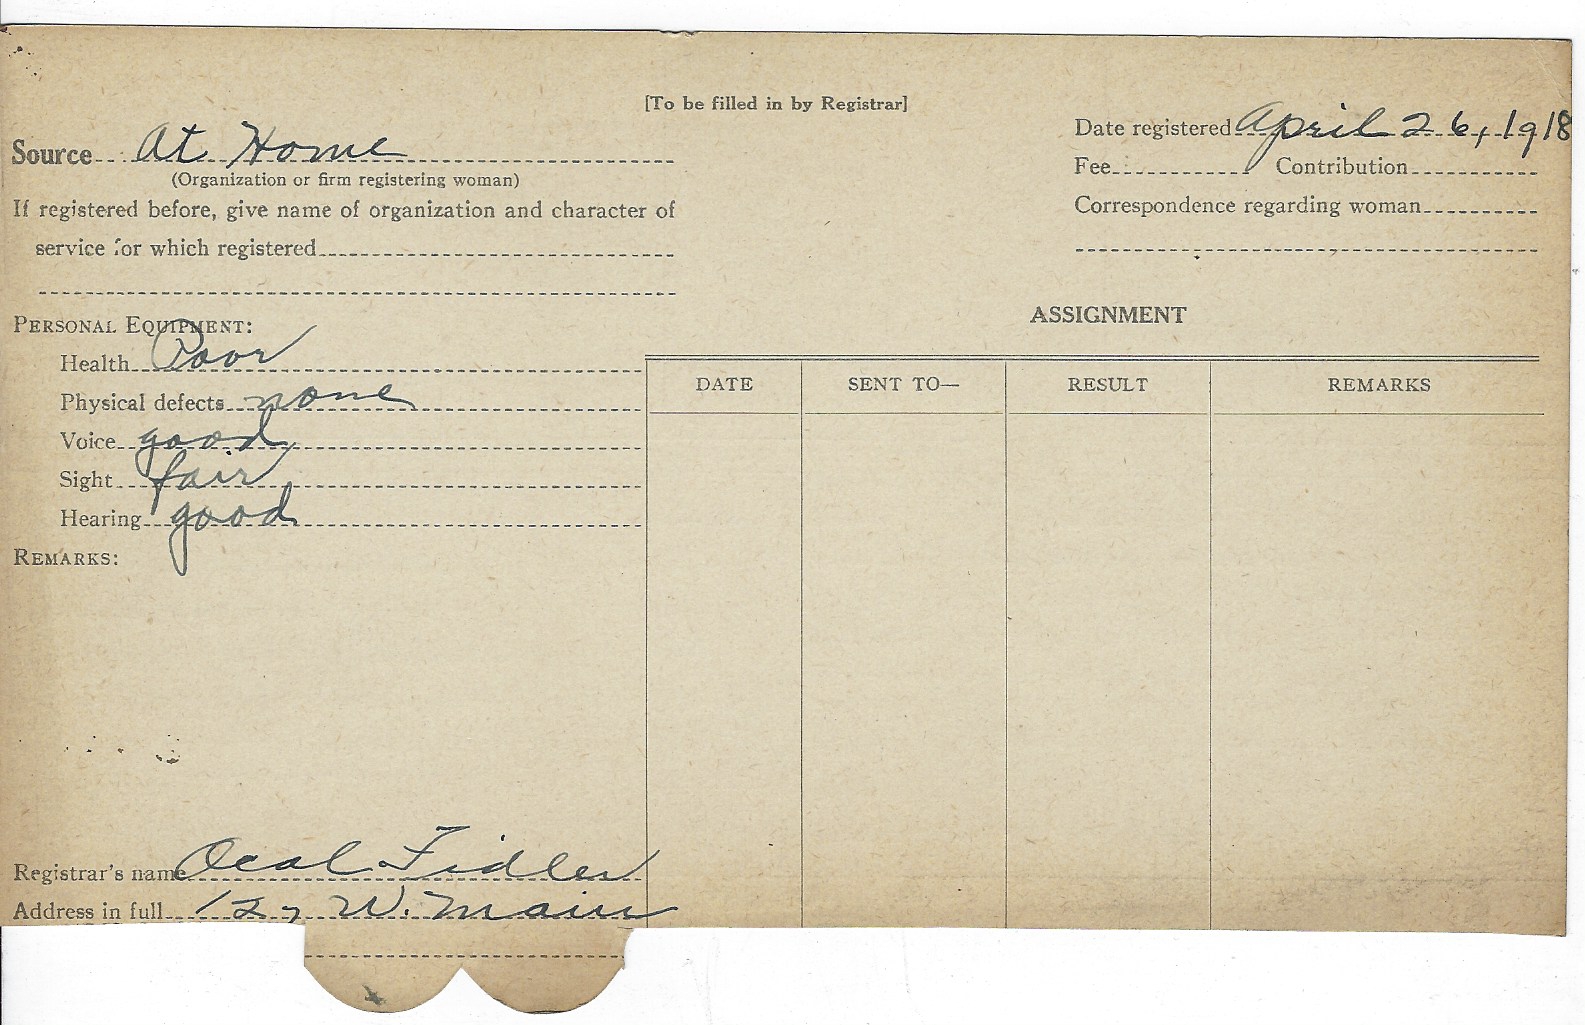 [To be filled in by Registrar]
Source At Home
(Organization or firm registering woman)
If registered before, give name of organization and character of
service for which registered
Date registered April 26, 1918
Fee Contribution
Correspondence regarding woman
PERSONAL EQUIPMENT:
Health Poor
Physical defects none
Voice good
Sight fair
Hearing good
REMARKS:
ASSIGNMENT
DATE SENT TO— RESULT REMARKS
Registrar's name Ocal Fidler
Address in full 127 W. Main